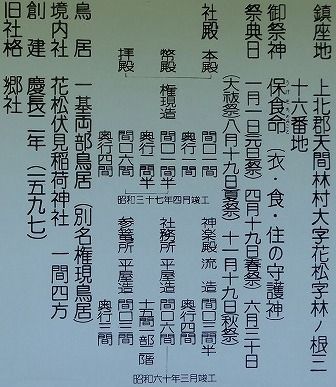 鎮座地 上北郡天間林村大字花松字林ノ根三
十六番地
御祭神 保食命(衣・食・住の守護神)
うけもちのみこと
祭典日 一月一日元旦祭 四月十九日春祭 六月三十日
(大祓祭八月十九日夏祭)十一月十九日秋祭
社殿 本殿 間口一間 奥行一間
幣殿 権現造 間口一間半 奥行一間半
拝殿 間口六間 奥行四間
昭和三十七年四月竣工
神楽殿 流造 間口三間半 奥行四間
社務所 平屋造 間口六間 十五間一部二階
参篭所 平屋造 間口三間 奥行三間
昭和六十年三月竣工
鳥居 一基両部鳥居(別名権現鳥居)
境内社 花松伏見稲荷神社 一間四方
創建 慶長二年(一五九七)
旧社格 郷社